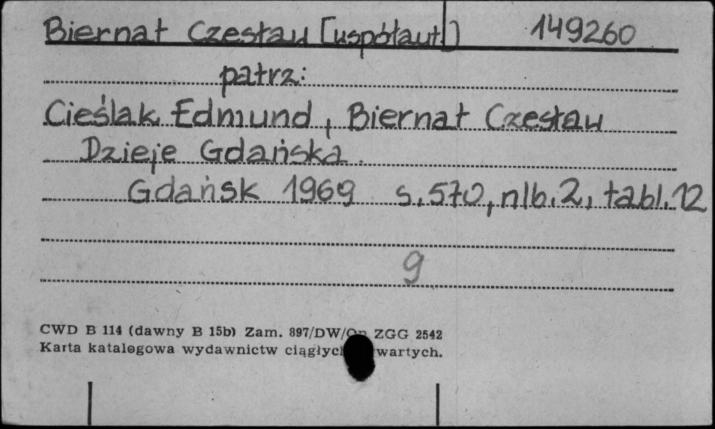 Biernat Czesław [współaut.] 149260
patrz:
Cieślak Edmund, Biernat Czesław
Dzieje Gdańska.
Gdańsk 1969 s. 570, nlb. 2, tabl. 12
9
CWD B 114 (dawny B 15b) Zam. 897/DW/Op ZGG 2542
Karta katalogowa wydawnictw ciągłyc wartych.